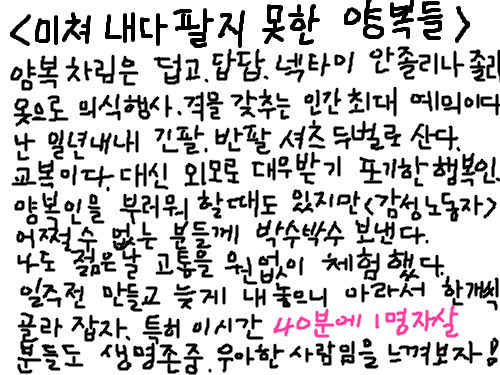 <미쳐 내다 팔지 못한 양복들>
양복 차림은 덥고. 답답. 넥타이 안졸리나 졸리
옷으로 의식행사. 격을 갖추는 인간 최대 예의이다
난 일년내내 긴팔. 반팔 셔츠 두벌로 산다.
교복이다. 대신 외모로 대우받기 포기한 행복인.
양복인을 부러워 할때도 있지만 <감성노동자>
어쩔수 없는 분들께 박수박수 보낸다.
나도 젊은날 고통을 원없이 체험했다.
일주전 만들고 늦게 내놓으니 아라서 한개씩
골라 잡자. 특허 이시간 40분에 1명자살
분들도 생명존중. 우아한 사람임을 느껴보자!